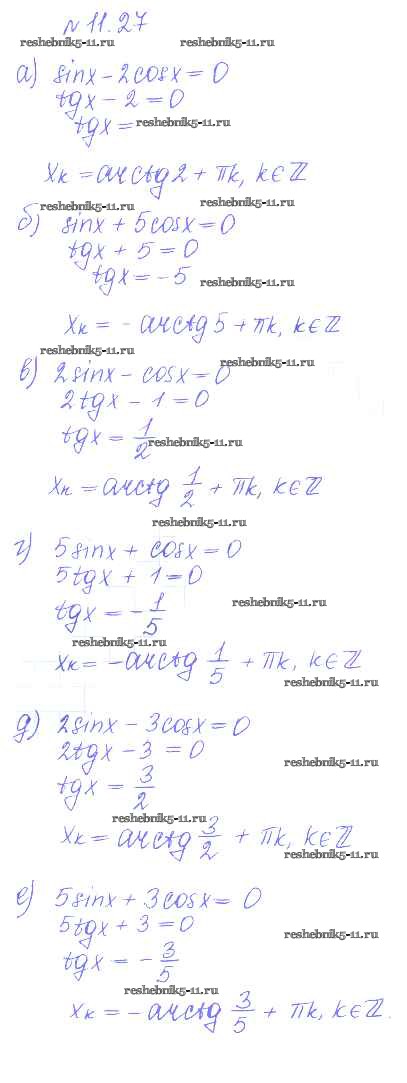 №11.27
reshebnik5-11.ru reshebnik5-11.ru
а) sinx - 2cosx = 0
tgx - 2 = 0
tgx = reshebnik5-11.ru
xₖ = arctg2 + πk, k∈ℤ
reshebnik5-11.ru reshebnik5-11.ru
б) sinx + 5cosx = 0
tgx + 5 = 0
tgx = -5
reshebnik5-11.ru
xₖ = - arctg5 + πk, k∈ℤ
reshebnik5-11.ru reshebnik5-11.ru
в) 2sinx - cosx = 0
2tgx - 1 = 0
tgx = 1/2 reshebnik5-11.ru
xₖ = arctg 1/2 + πk, k∈ℤ
reshebnik5-11.ru
г) 5sinx + cosx = 0
5tgx + 1 = 0
tgx = - 1/5 reshebnik5-11.ru
reshebnik5-11.ru
xₖ = -arctg 1/5 + πk, k∈ℤ
reshebnik5-11.ru
д) 2sinx - 3cosx = 0
2tgx - 3 = 0
reshebnik5-11.ru
tgx = 3/2
reshebnik5-11.ru
xₖ = arctg 3/2 + πk, k∈ℤ
reshebnik5-11.ru
е) 5sinx + 3cosx = 0
5tgx + 3 = 0
reshebnik5-11.ru
tgx = - 3/5
reshebnik5-11.ru
xₖ = -arctg 3/5 + πk, k∈ℤ.